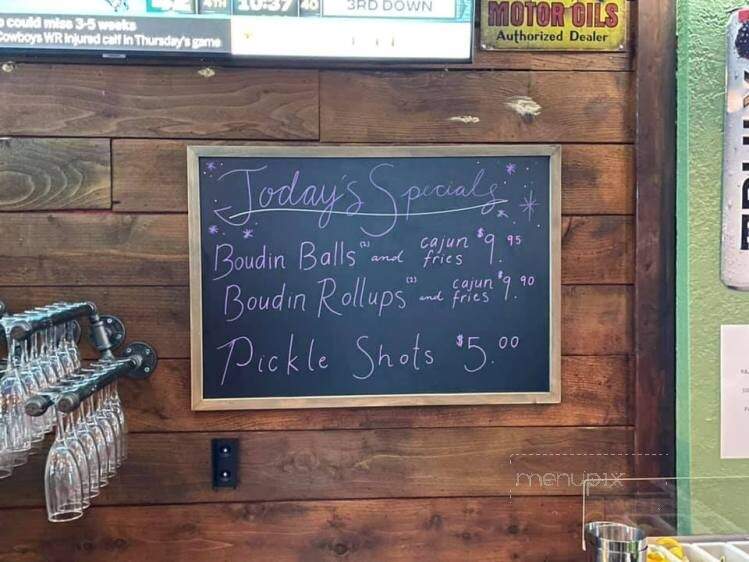 4TH 10:37 40
3RD DOWN
could miss 3-5 weeks
Cowboys WR injured calf in Thursday's game
MOTOR OILS
Authorized Dealer
Today's Specials
Boudin Balls (2) and cajun fries $9.95
Boudin Rollups (2) and cajun fries $9.90
Pickle Shots $5.00
menupix